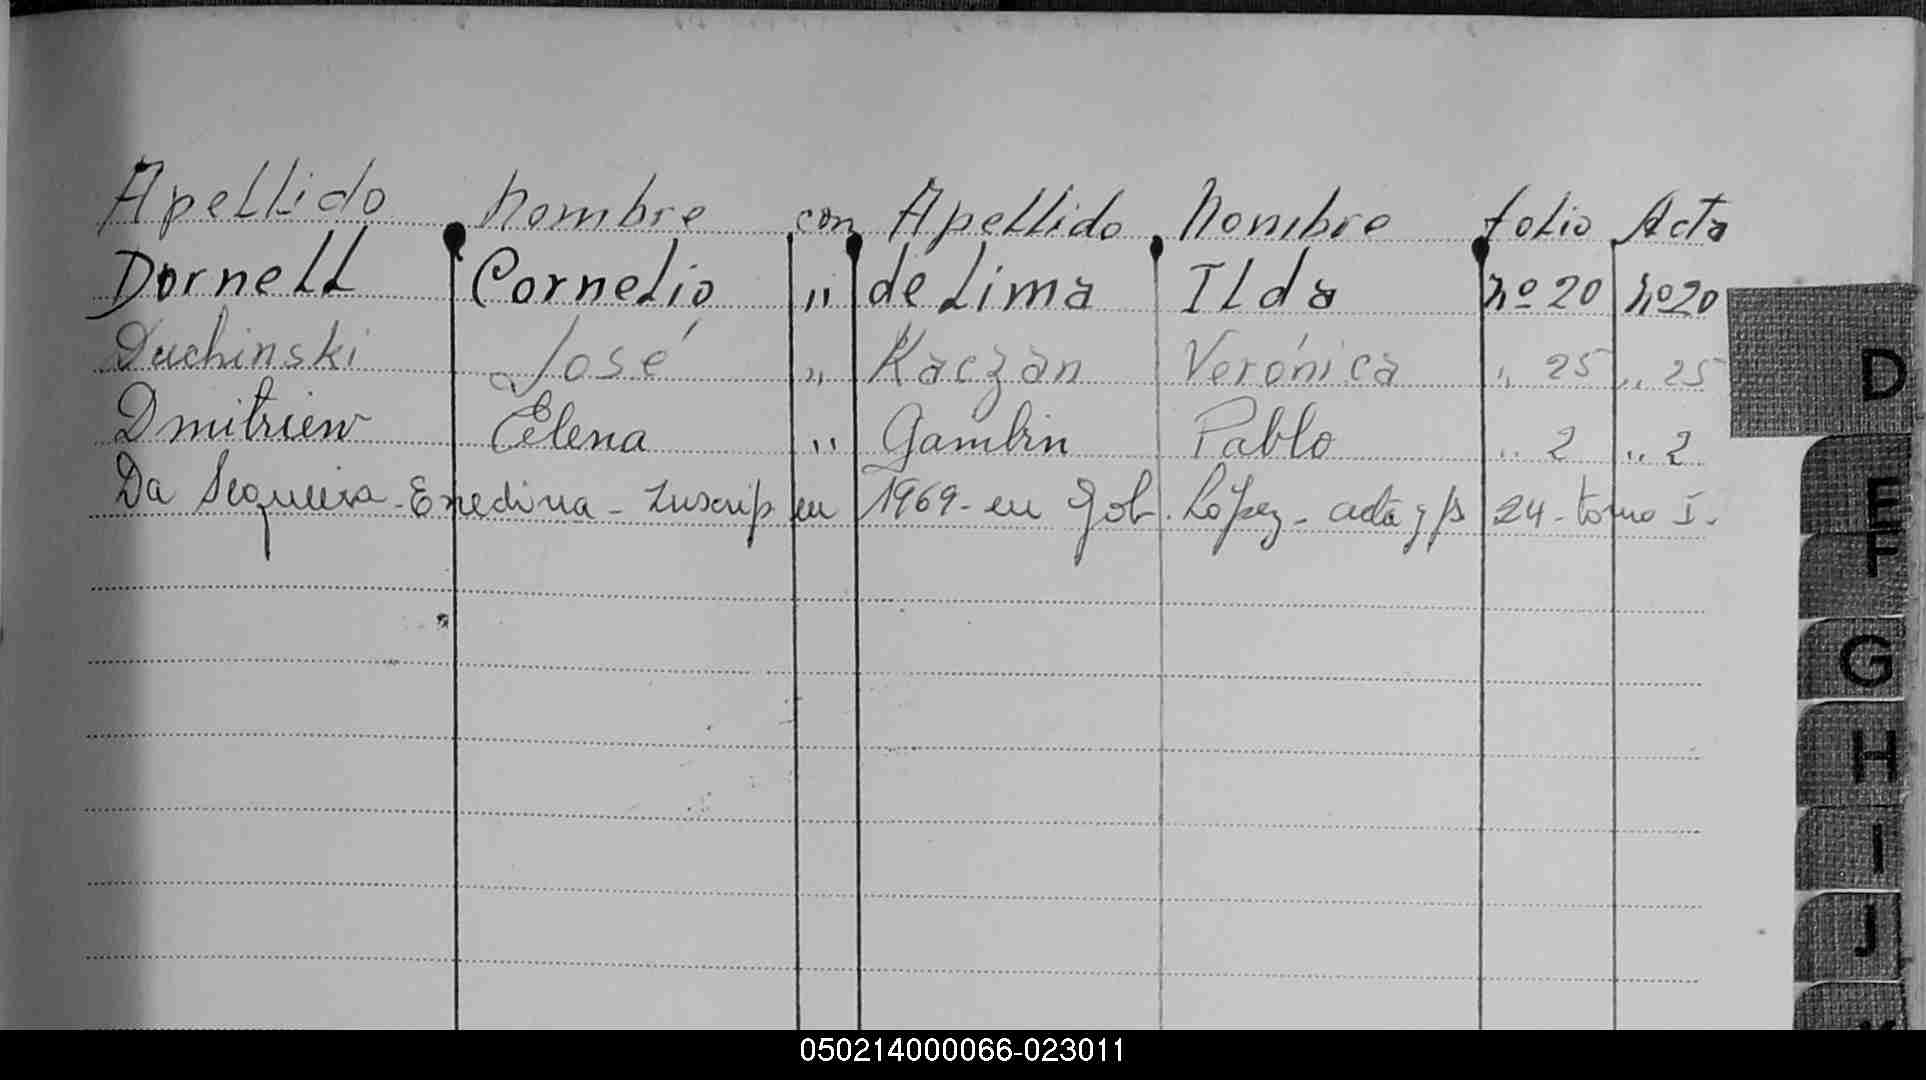 Apellido Nombre con Apellido Nombre folio Acta
Dornell Cornelio " de Lima Ilda nº 20 nº 20
Duchinski José " Kaczan Verónica " 25 " 25
Dmitriew Elena " Gambin Pablo " 2 " 2
Da Sequeira - Enedina - Inscrip en 1969 - en Gob. López - acta y fs 24 - tomo I.
D
E
F
G
H
I
J
K
050214000066-023011